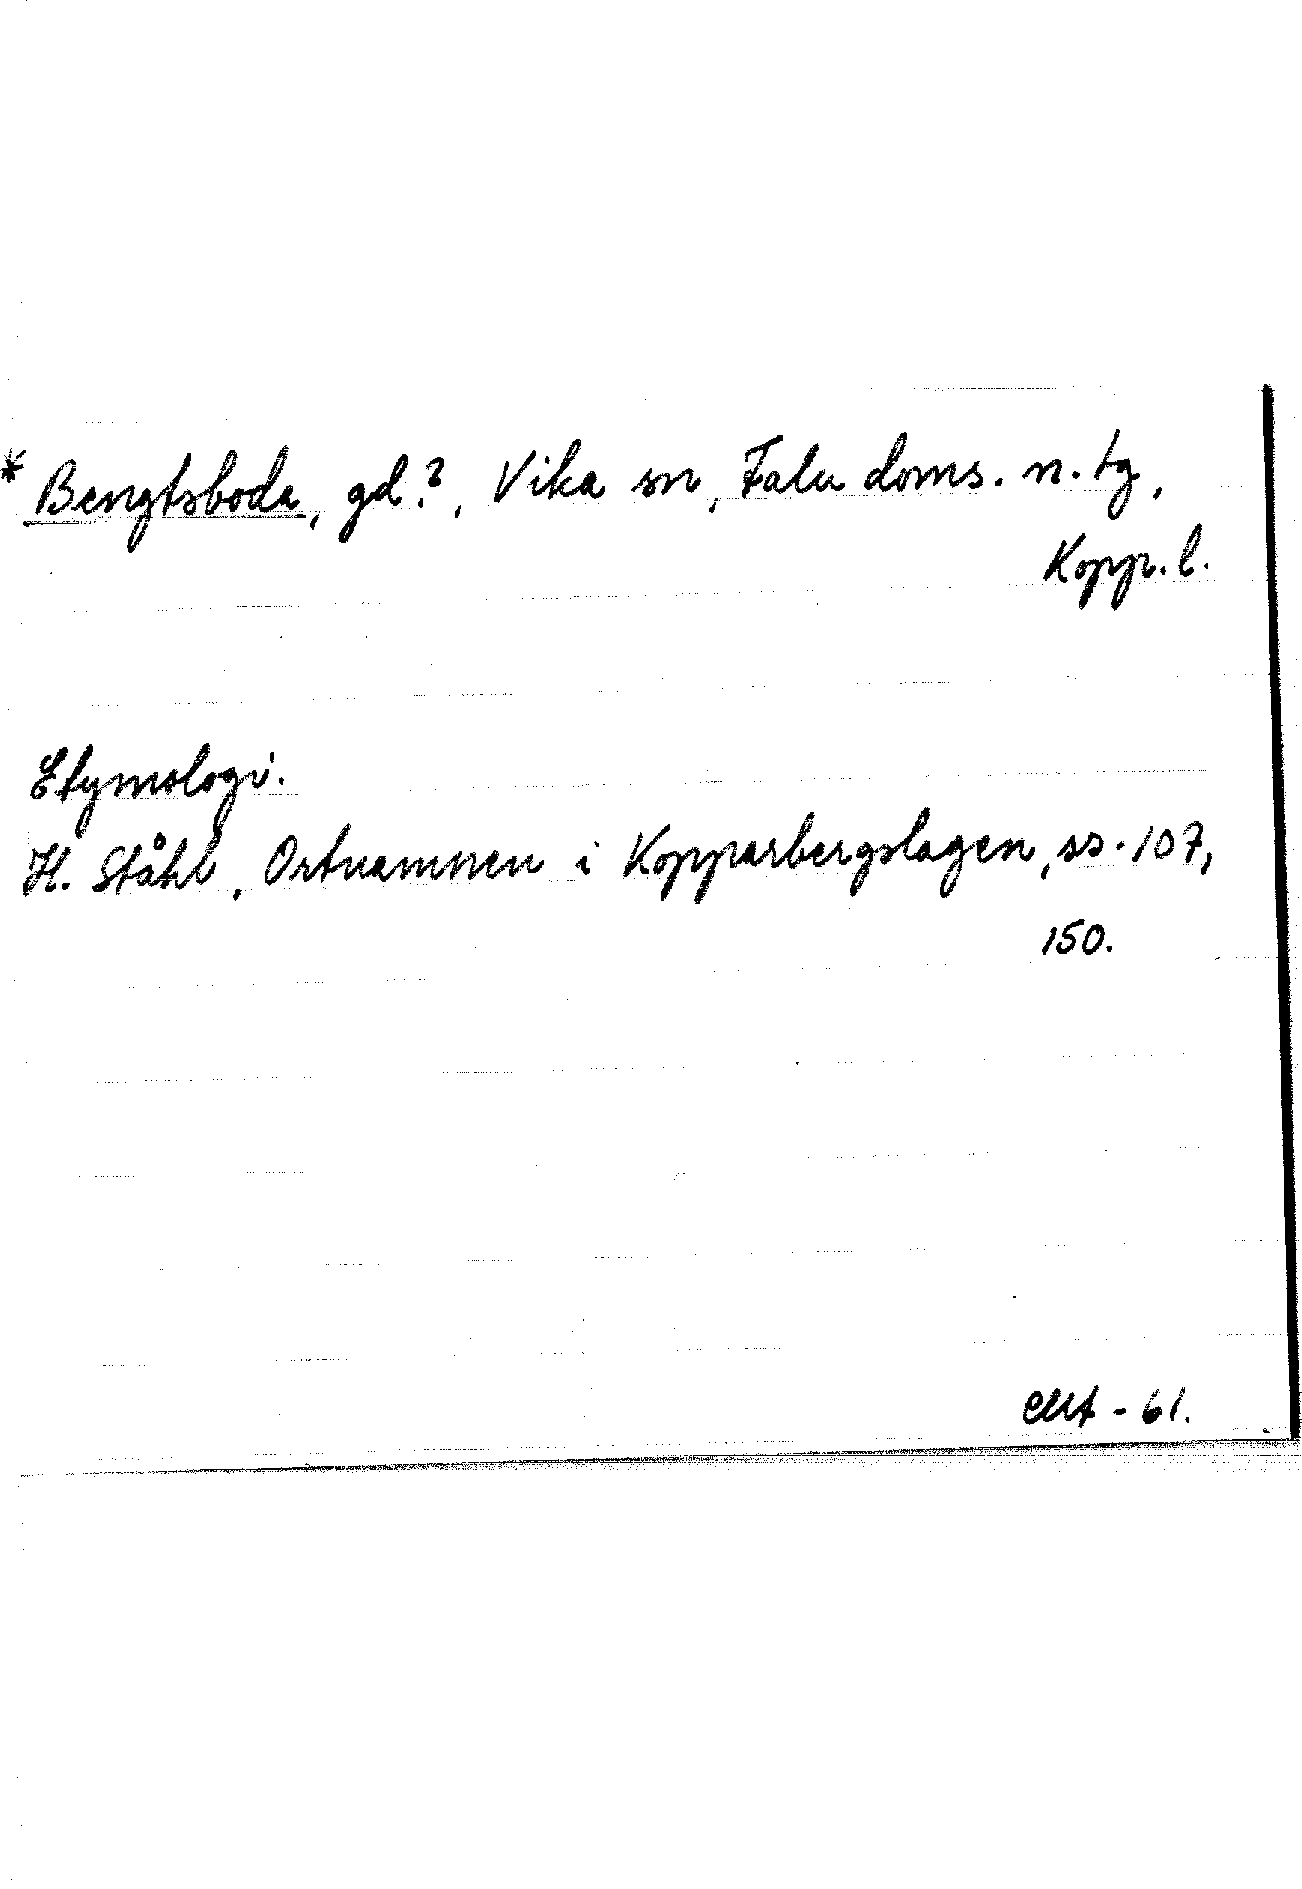 * Bengtsboda, gd?, Vika sn, Falu doms. n. tg,
Kopp. l.
Etymologi.
H. Ståhl, Ortnamnen i Kopparbergslagen, ss. 107,
150.
- 61.